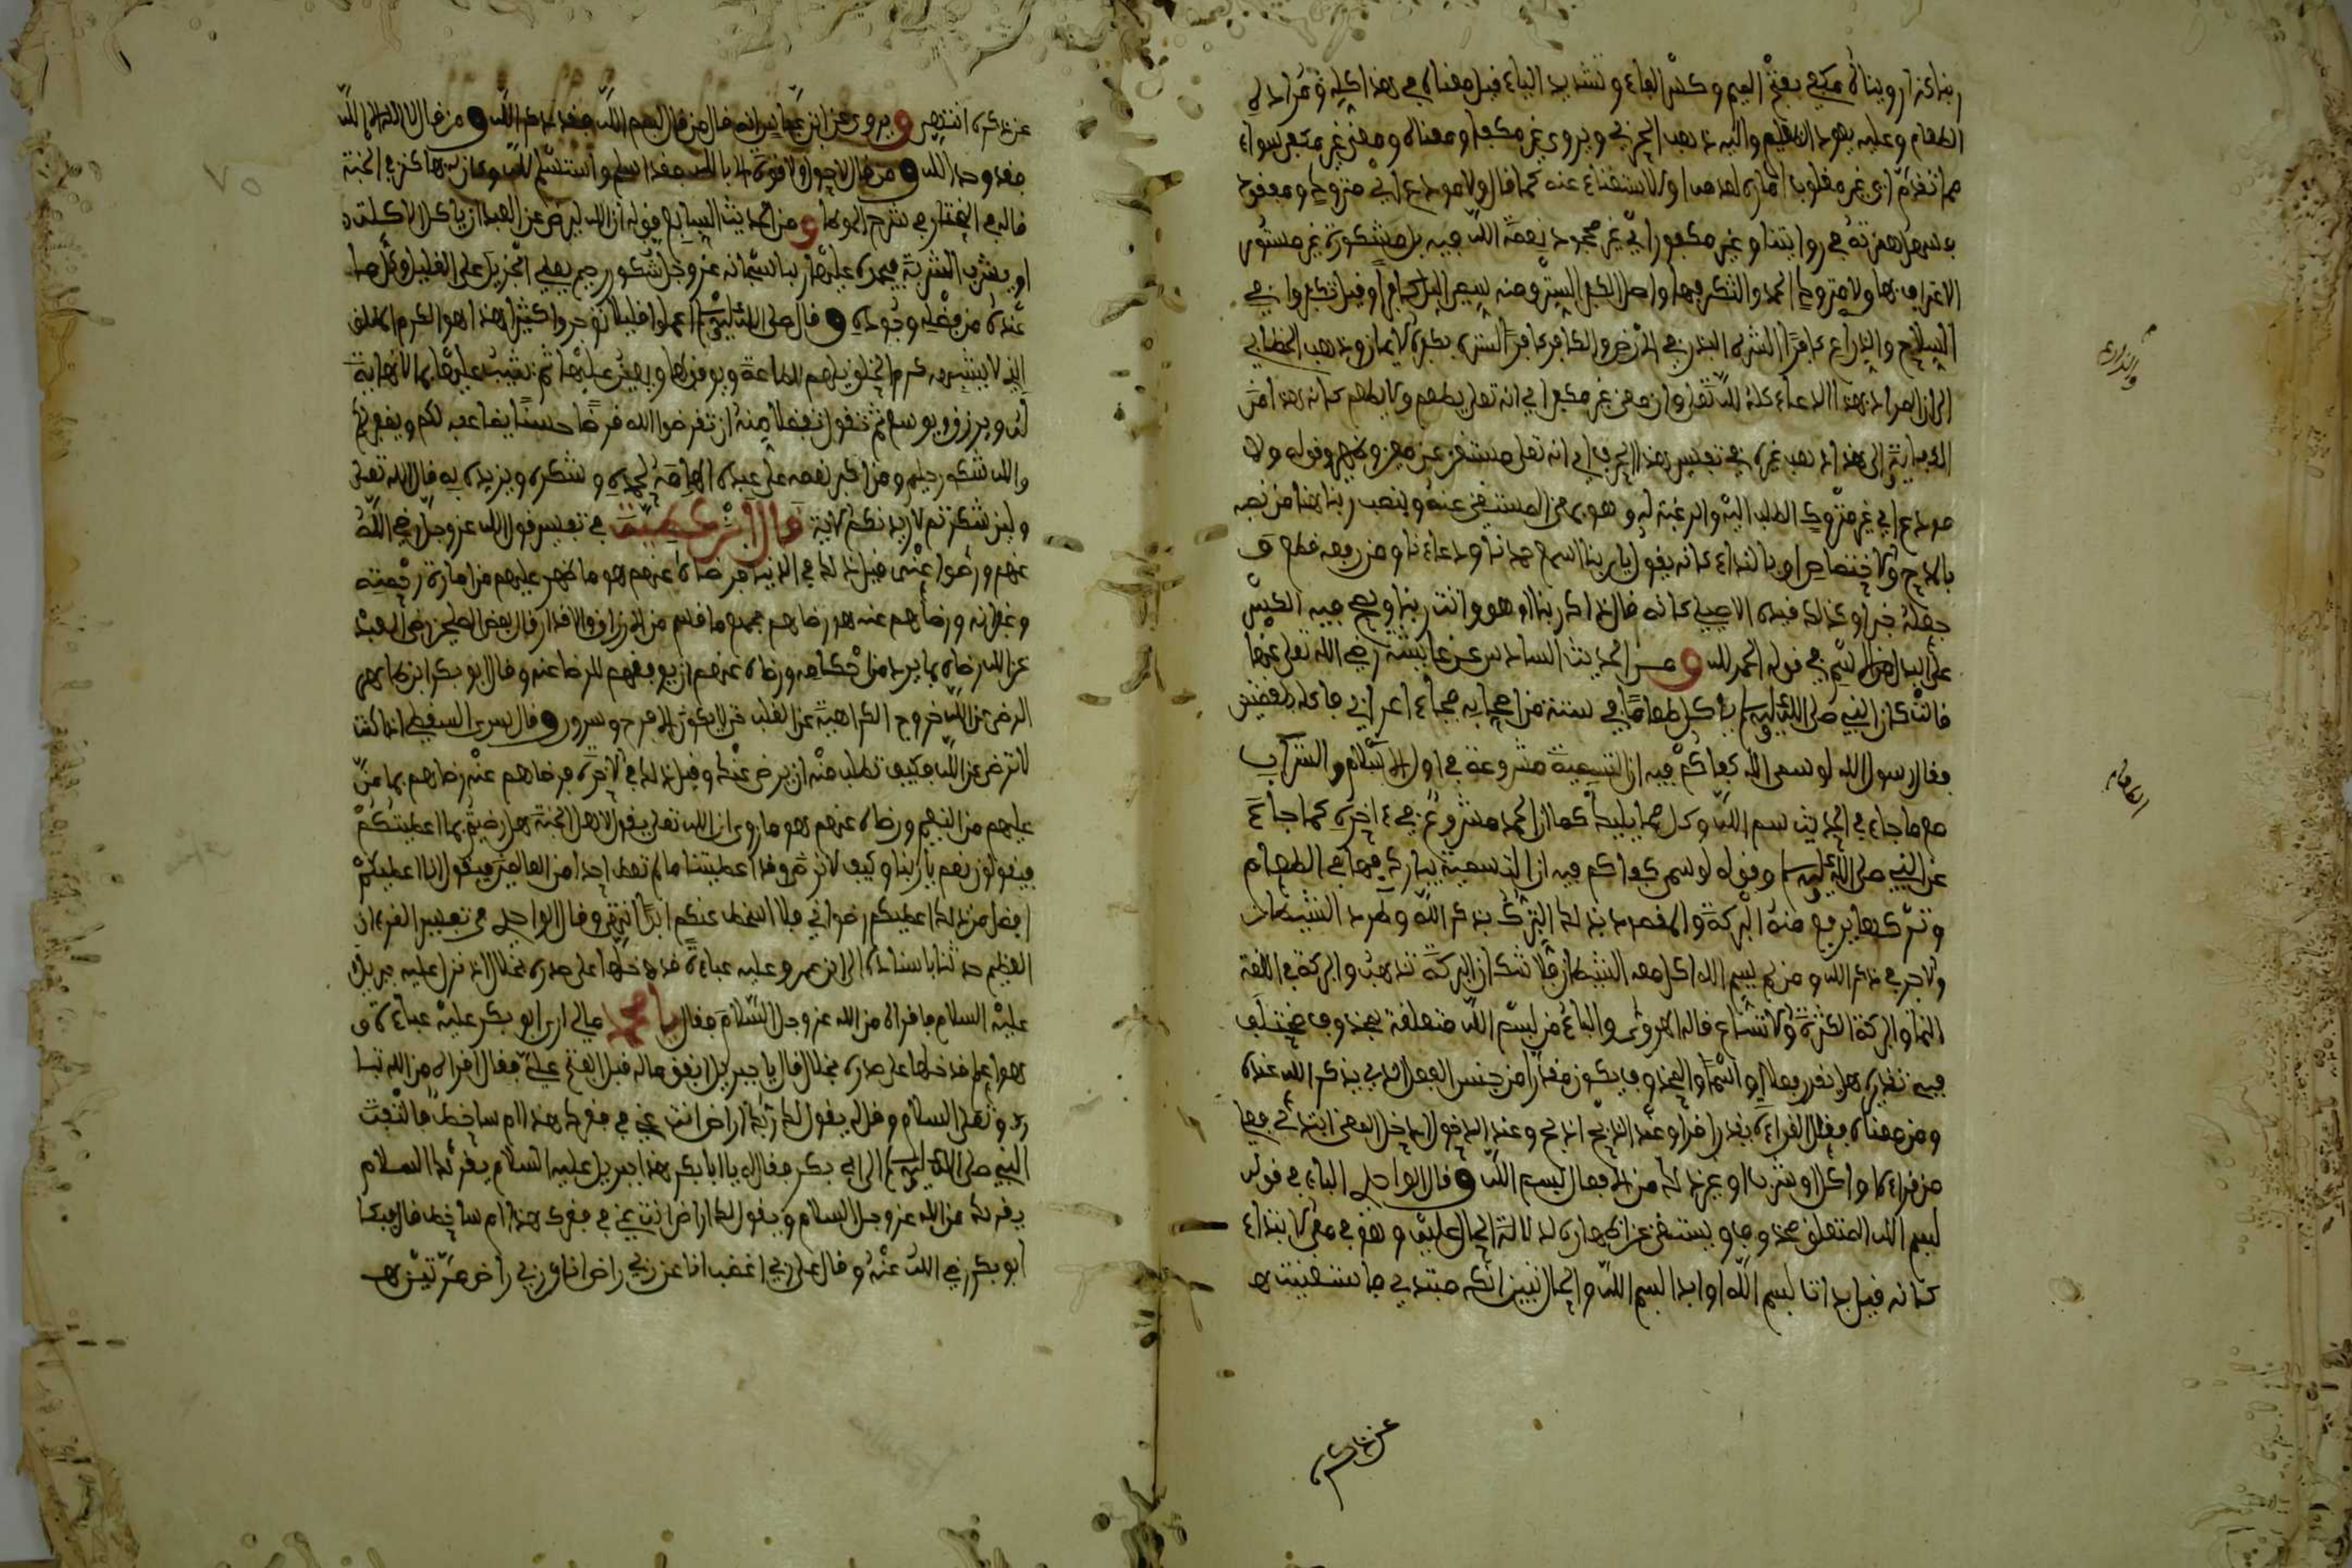 ربنا كذا رويناه مكفي بفتح الميم وكسر الفاء وتشديد الياء قيل معناه في هذا كله ومراده
الطعام وعليه يعود الضمير واليه ذهب الحربي ويروى غير مكفإ ومعناه ومعنى غير مكفي سواء
مما تقدم اي غير مقلوب اناؤه لعدمه او للاستغناء عنه كما قال ولا مودع اي متروك ومفقود
فتسهل همزته في روايتنا وغير مكفور اي غير مجحود نعمة الله فيه بل مشكورة غير مستور
الاعتراف بها ولا متروك الحمد والشكر فيها واصل الكفر الستر ومنه سمي الليل كافرا وقيل تكفر وا في
السلاح والزراع كافرا لستره البذر في الارض والكافر كافرا لستره بكفره الايمان وذهب الخطابي
الى ان المراد بهذا الدعاء كله لله تعالى وان معنى غير مكفي اي انه تعالى يطعم ولا يطعم كانه هنا من
الكفاية والى هذا ذهب غيره في تفسير هذا الحرف اي انه تعالى مستغن عن معين وظهير وقوله ولا
مودع اي غير متروك الطلب اليه والرغبة له وهو بمعنى المستغنى عنه وينصب ربنا هنا من نصبه
بالمدح والاختصاص او بالنداء كانه يقول يا ربنا اسمع حمدنا ودعاءنا ومن رفعه قطع و
جعله خبرا وكذلك قيده الاصيلي كانه قال ذلك ربنا او هو وانت ربنا ويصح فيه الكسر
على البدل من الاسم في قوله الحمد لله ومن الحديث السادس عن عائشة رضي الله تعالى عنها
قالت كان النبي صلى الله عليه وسلم ياكل طعاما في ستة من اصحابه فجاء اعرابي فاكله بلقمتين
فقال رسول الله لو سمى الله كفاكم فيه ان التسمية مشروعة في اول الاكل والشراب
مع ما جاء في الحديث سم الله وكل مما يليك كما ان الحمد مشروع في ءاخره كما جاء
عن النبي صلى الله عليه وسلم وقوله لو سمى كفاكم فيه ان التسمية يبارك فيها في الطعام
وتركها يرفع منه البركة والمقصد بذلك التبرك بذكر الله وطرد الشيطان
ولاجر في ذكر الله ومن لم يسم الله اكل معه الشيطان فلا شك ان البركة تذهب والبركة في اللغة
النما والبركة الكثرة والاتساع قاله الهروي والباء من بسم الله متعلقة بمحذوف مختلف
فيه تقديره هل تقدر فعلا او اسما والمحذوف يكون مقدرا من جنس الفعل الذي يذكر الله عنده
ومن معناه فقبل القراءة يقدر اقرا وعند الذبح اذبح وعند الدخول ادخل المعنى ابتدائي فيما
من قراءة او اكل او شرب او غير ذلك من الافعال بسم الله وقال الواحدي الباء في قوله
بسم الله المتعلق محذوفا ويستغنى عن اظهاره لدلالة الحال عليه وهو في معنى الابتداء
كانه قيل بداتا بسم الله او ابدا بسم الله والحال تبين انك مبتدي فاستغنيت
والذراع
الطعام
عن ذكره
عن ذكره انتهى ويروى عن ابن عباس انه قال من قال بسم الله فقد ذكر الله ومن قال لا اله الا الله
فقد وحد الله ومن قال لا حول ولا قوة الا بالله فقد اسلم واستسلم لله وكان بها كنز في الجنة
قاله في المختار في شرح الموطا ومن الحديث السابع قوله ان الله ليرضى عن العبد ان ياكل الاكلة
او يشرب الشربة فيحمده عليها ربنا سبحانه عز وجل شكور رحيم يعطي الجزيل على القليل وكل هذا
عنده من فضله وجوده وقال صلى الله عليه وسلم اعملوا قليلا توجروا كثيرا هذا هو الكرم المطلق
الذي لا يشبهه كرم المخلوقين للطاعة ويوفق لها ويعين عليها ثم يثيب عليها بما لا نهاية
له ويرزق ويوسع ثم يقول تفضلا منه ان تقرضوا الله قرضا حسنا يضاعفه لكم ويغفر لكم
والله شكور حليم ومن اكبر نعمه على عبده الهامه لحمده وشكره ويزيده به قال الله تعالى
ولئن شكرتم لازيدنكم الاية قال ابن عطية في تفسير قول الله عز وجل رضي الله
عنهم ورضوا عنه قيل ذلك في الدنيا فرضاه عنهم هو ما ظهر عليهم من امارة رحمته
وغفرانه ورضاهم عنه هو رضاهم بجميع ما قسم من الارزاق والاقدار قال بعض الصالحين رضى العبد
عن الله رضاه بما يرد من احكامه ورضاه عنهم ان يوفقهم للرضا عنه وقال ابو بكر ابن طاهر
الرضى عن الله خروج الكراهية عن القلب حتى لا يكون الا فرح وسرور وقال سري السقطي اذا كنت
لا ترضى عن الله فكيف تطلب منه ان يرضى عنك وقيل ذلك في الاخرة فرضاهم عنه رضاهم بما من
عليهم من النعيم ورضاه عنهم هو ما روي ان الله تعالى يقول لاهل الجنة هل رضيتم بما اعطيتكم
فيقولون نعم يا ربنا وكيف لا نرضى وقد اعطيتنا ما لم تعط احدا من العالمين فيقول انا اعطيكم
افضل من ذلك اعطيكم رضواني فلا اسخط عنكم ابدا انتهى وقال الواحدي في تفسير القرءان
العظيم حدثنا باسناده الى ابن عمر وعليه عباءة قد خلها على صدره بخلال اذ نزل عليه جبريل
عليه السلام فاقراه من الله عز وجل السلام فقال يا محمد مالي ارى ابو بكر عليه عباءة و
هو اعلم قد خلها على صدره بخلال قال يا جبريل انفق ماله قبل الفتح علي فقال اقراه من الله تبا
رك وتعالى السلام وقل له يقول لك ربك اراض انت عني في فقرك هذا ام ساخط فالتفت
النبي صلى الله عليه وسلم الى ابي بكر فقال له يا ابا بكر هذا جبريل عليه السلام يقرئك السلام
يقرئك من الله عز وجل السلام ويقول لك اراض انت عني في فقرك هذا ام ساخط قال فبكا
ابو بكر رضي الله عنه وقال على ربي اغضب انا عن ربي راض انا عن ربي راض مرتين